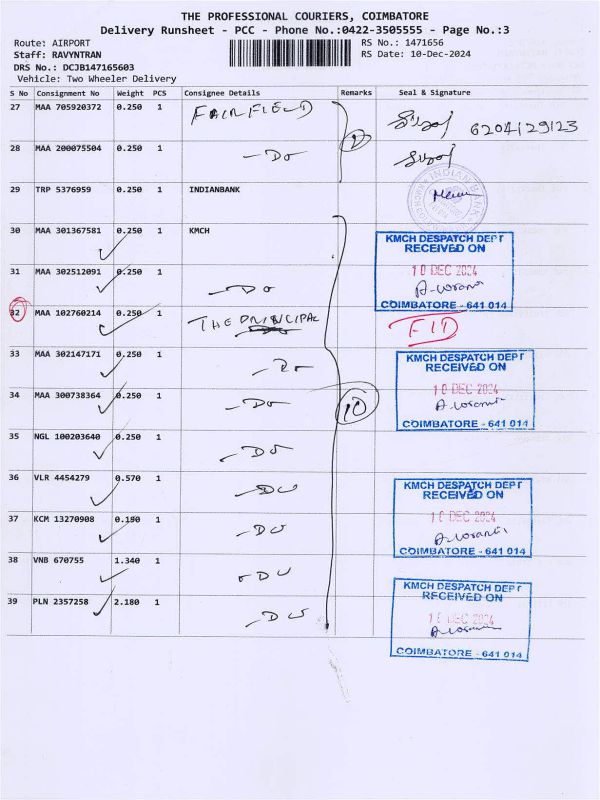 THE PROFESSIONAL COURIERS, COIMBATORE
Delivery Runsheet - PCC - Phone No.:0422-3505555 - Page No.:3
Route: AIRPORT
RS No.: 1471656
Staff: RAVYNTRAN
RS Date: 10-Dec-2024
DRS No.: DCJB147165603
Vehicle: Two Wheeler Delivery
S No Consignment No Weight PCS Consignee Details Remarks Seal & Signature
27 MAA 705920372 0.250 1 FAIRFIELD 6204129123
2
28 MAA 200075504 0.250 1 -Do
29 TRP 5376959 0.250 1 INDIANBANK
INDIAN BANK
30 MAA 301367581 0.250 1 KMCH
KMCH DESPATCH DEPT
RECEIVED ON
10 DEC 2024
COIMBATORE - 641 014
31 MAA 302512091 0.250 1 -Do
32 MAA 102760214 0.250 1 THE PRINCIPAL FID
33 MAA 302147171 0.250 1 -Do
KMCH DESPATCH DEPT
RECEIVED ON
10 DEC 2024
COIMBATORE - 641 014
34 MAA 300738364 0.250 1 -Do 10
35 NGL 100203640 0.250 1 -Do
36 VLR 4454279 0.570 1 -Do
KMCH DESPATCH DEPT
RECEIVED ON
10 DEC 2024
COIMBATORE - 641 014
37 KCM 13270908 0.190 1 -Do
38 VNB 670755 1.340 1 -Do
39 PLN 2357258 2.180 1 -Do
KMCH DESPATCH DEPT
RECEIVED ON
10 DEC 2024
COIMBATORE - 641 014